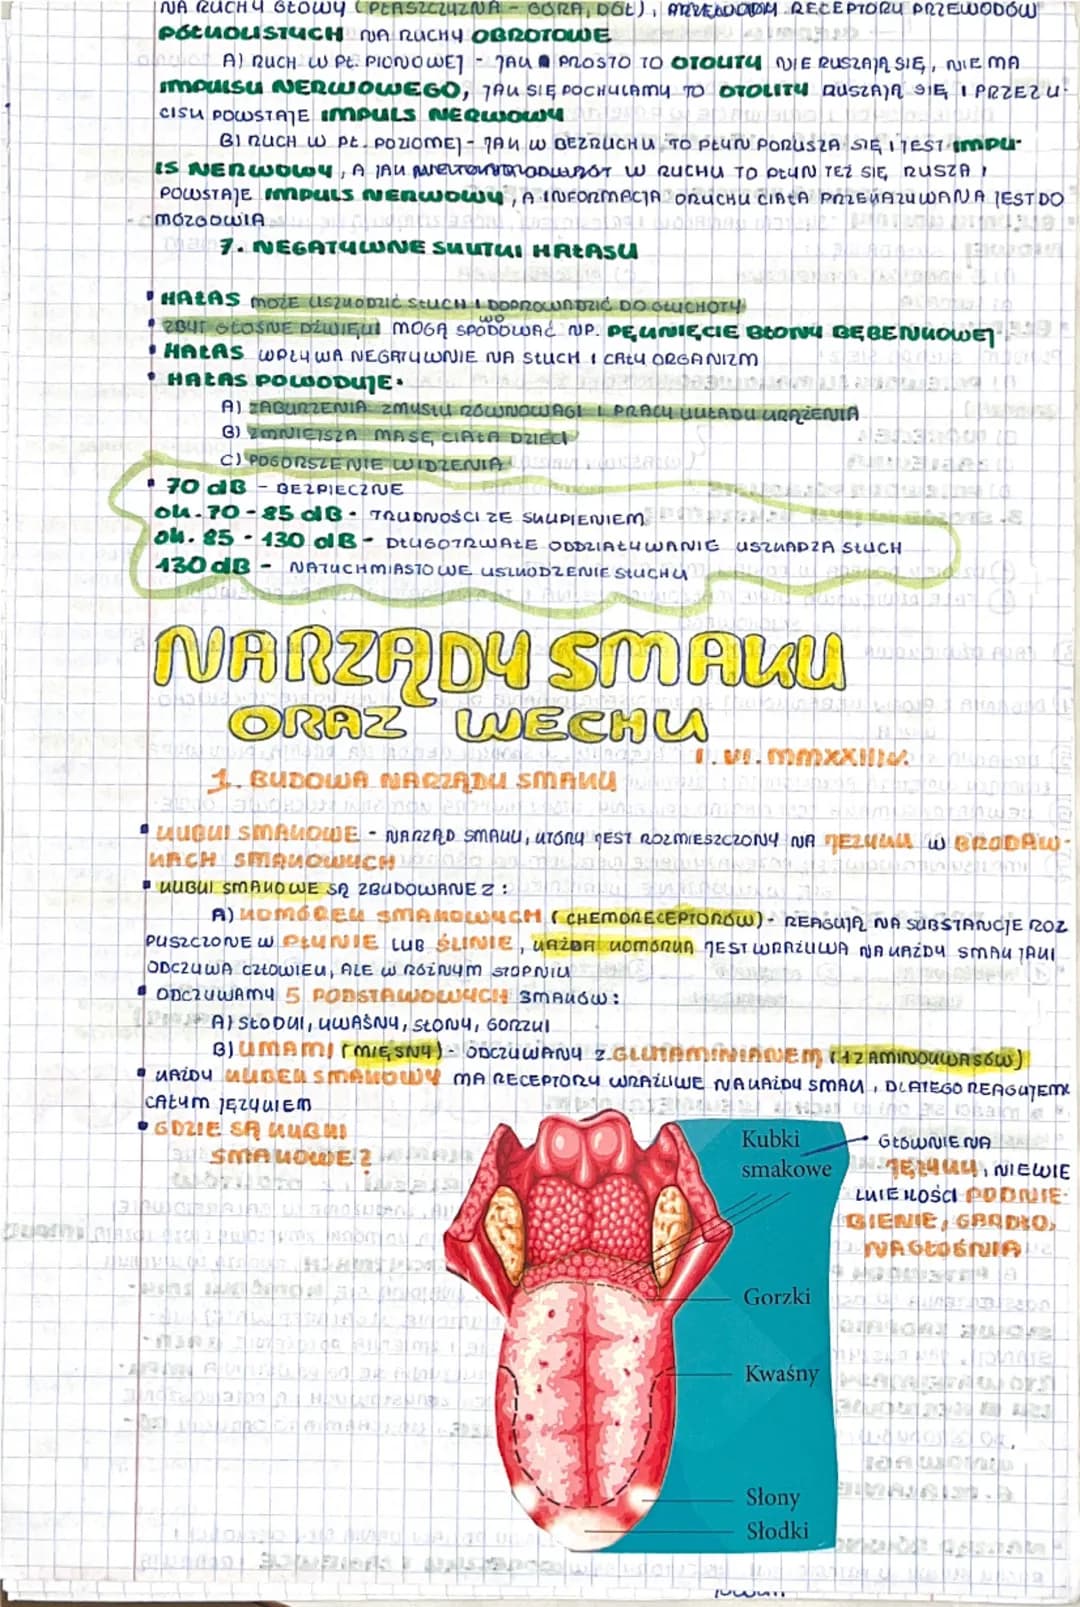 NA RUCHY GŁOWY (PŁASZCZYZNA - GÓRA, DÓŁ), RECEPTORY PRZEWODÓW
PÓŁKOLISTYCH NA RUCHY OBROTOWE
A) RUCH W PŁ. PIONOWEJ - JAK PROSTO TO OTOLITY NIE RUSZAJĄ SIĘ, NIE MA
IMPULSU NERWOWEGO, JAK SIĘ POCHYLAMY TO OTOLITY RUSZAJĄ SIĘ I PRZEZ U-
CISK POWSTAJE IMPULS NERWOWY
B) RUCH W PŁ. POZIOMEJ - JAK W BEZRUCHU TO PŁYN PORUSZA SIĘ I JEST IMPU-
LS NERWOWY, A JAK ODWRÓT W RUCHU TO PŁYN TEŻ SIĘ RUSZA I
POWSTAJE IMPULS NERWOWY, A INFORMACJA O RUCHU CIAŁA PRZEKAZYWANA JEST DO
MÓZGOWIA
7. NEGATYWNE SKUTKI HAŁASU
HAŁAS MOŻE USZKODZIĆ SŁUCH I DOPROWADZIĆ DO GŁUCHOTY
ZBYT GŁOŚNE DŹWIĘKI MOGĄ SPOWODOWAĆ NP. PĘKNIĘCIE BŁONY BĘBENKOWEJ
HAŁAS WPŁYWA NEGATYWNIE NA SŁUCH I CAŁY ORGANIZM
HAŁAS POWODUJE:
A) ZABURZENIA ZMYSŁU RÓWNOWAGI I PRACY UKŁADU KRĄŻENIA
B) ZMNIEJSZA MASĘ CIAŁA DZIECI
C) POGORSZENIE WIDZENIA
70 dB - BEZPIECZNE
ok. 70 - 85 dB - TRUDNOŚCI ZE SKUPIENIEM
ok. 85 - 130 dB - DŁUGOTRWAŁE ODDZIAŁYWANIE USZKADZA SŁUCH
130 dB - NATYCHMIASTOWE USZKODZENIE SŁUCHU
NARZĄDY SMAKU
ORAZ WĘCHU
1. BUDOWA NARZĄDU SMAKU
KUBKI SMAKOWE - NARZĄD SMAKU, KTÓRY JEST ROZMIESZCZONY NA JĘZYKU W BRODAW-
KACH SMAKOWYCH
KUBKI SMAKOWE SĄ ZBUDOWANE Z:
A) KOMÓREK SMAKOWYCH (CHEMORECEPTORÓW) - REAGUJĄ NA SUBSTANCJE ROZ
PUSZCZONE W PŁYNIE LUB ŚLINIE, KAŻDA KOMÓRKA JEST WRAŻLIWA NA KAŻDY SMAK JAKI
ODCZUWA CZŁOWIEK, ALE W RÓŻNYM STOPNIU
ODCZUWAMY 5 PODSTAWOWYCH SMAKÓW:
A) SŁODKI, KWAŚNY, SŁONY, GORZKI
B) UMAMI (MIĘSNY) - ODCZUWANY Z GLUTAMINIANEM (1 Z AMINOKWASÓW)
KAŻDY KUBEK SMAKOWY MA RECEPTORY WRAŻLIWE NA KAŻDY SMAK, DLATEGO REAGUJEMY
CAŁYM JĘZYKIEM
GDZIE SĄ KUBKI
SMAKOWE?
Kubki
smakowe
GŁÓWNIE NA
JĘZYKU, NIEWIE
LKIE ILOŚCI PODNIE-
BIENIE, GARDŁO,
NAGŁOŚNIA
Gorzki
Kwaśny
Słony
Słodki